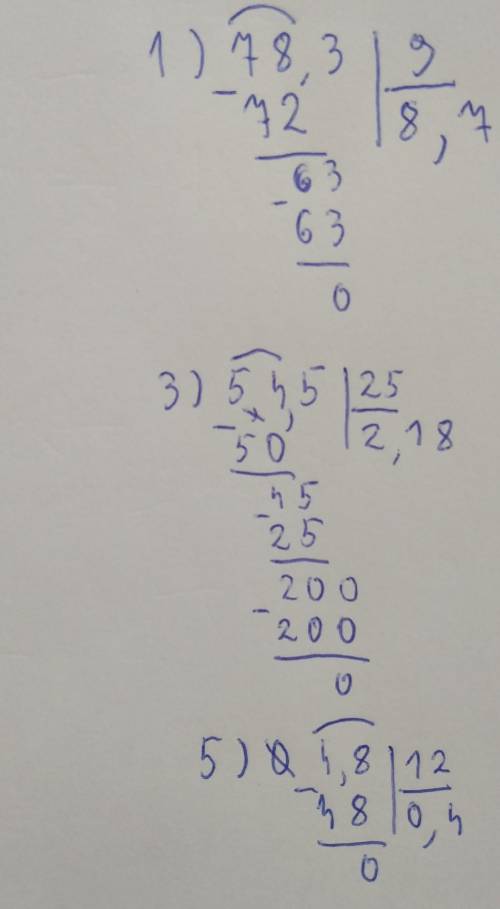 1) 78,3 | 9
- 72 | 8,7
63
- 63
0
3) 54,5 | 25
- 50 | 2,18
45
- 25
200
- 200
0
5) 4,8 | 12
- 48 | 0,4
0